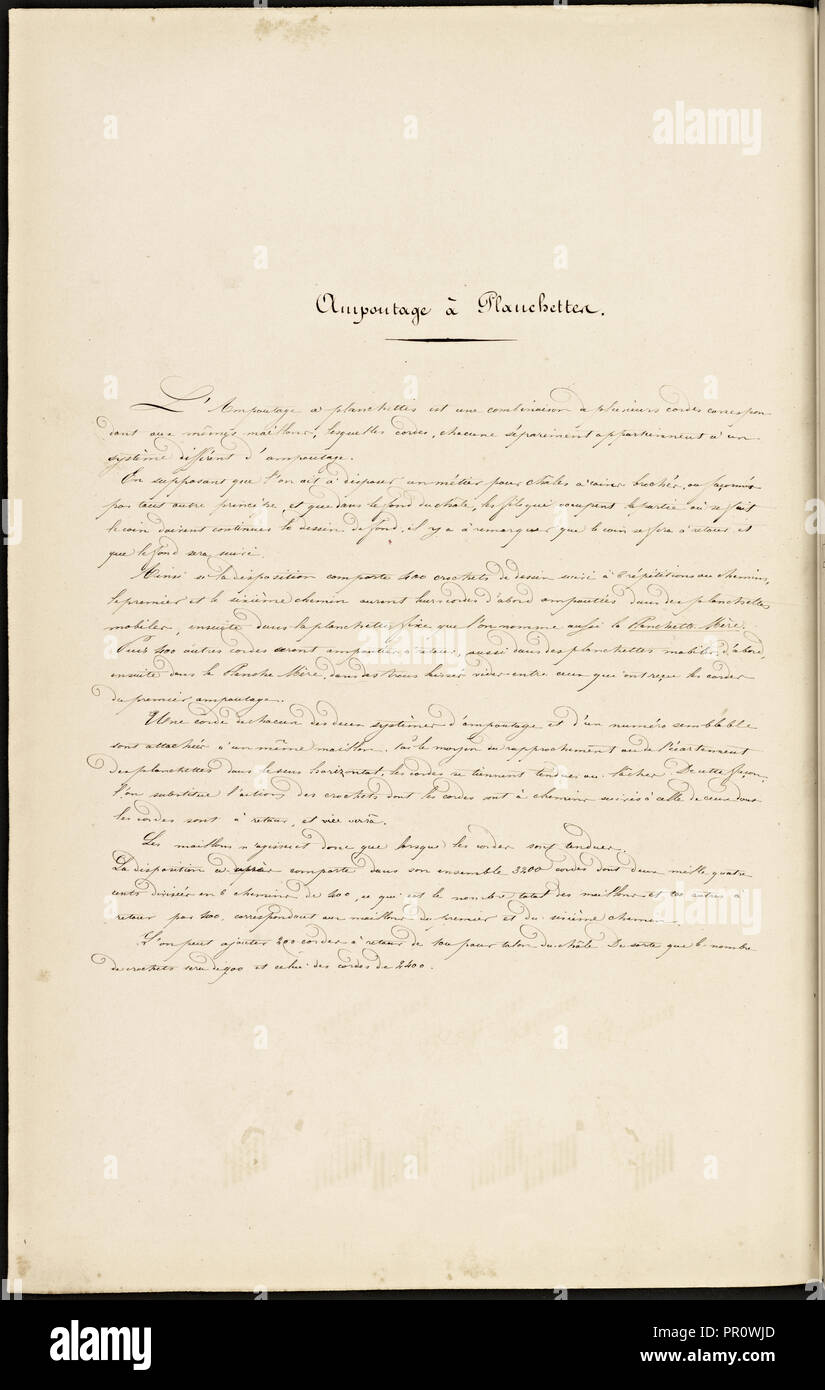 Ampoutage à Planchettes.
L'Ampoutage à planchettes est une combinaison à plusieurs cordes correspon
dant aux mêmes maillons, lesquelles cordes, chacune séparément appartiennent à un
système différent d'ampoutage.
En supposant que l'on ait à disposer un métier pour châles à coins brochés, ou façonnés
par tout autre principe, et que dans le fond du châle, les fils qui occupent la partie où se fait
le coin doivent continuer le dessin de fond, il y a à remarquer que le coin se fera à retour et
que le fond sera suivi.
Ainsi si la disposition comporte 400 crochets de dessin suivi à 6 répétitions ou chemins,
le premier et le sixième chemin auront leurs cordes d'abord ampoutées dans des planchettes
mobiles, ensuite dans la planchette fixe que l'on nomme aussi la Planchette Mère.
Puis 400 autres cordes seront ampoutées à retour, aussi dans des planchettes mobiles, d'abord,
ensuite dans la Planche Mère, dans des trous laissés vides entre ceux qui ont reçu les cordes
du premier ampoutage.
Une corde de chacun des deux systèmes d'ampoutage et d'un numéro semblable
sont attachés à un même maillon. Par le moyen du rapprochement ou de l'écartement
des planchettes dans le sens horizontal, les cordes se tiennent tendues ou lâches. De cette façon,
l'on substitue l'action des crochets dont les cordes sont à chemins suivis à celle de ceux dont
les cordes sont à retour, et vice versà.
Les maillons n'agissent donc que lorsque les cordes sont tendues.
La disposition ci après comporte dans son ensemble 3200 cordes dont deux mille quatre
cents divisées en 6 chemins de 400, ce qui est le nombre total des maillons et 800 autres à
retour par 400, correspondant aux maillons du premier et du sixième chemin.
L'on peut ajouter 200 cordes à retour de 100 pour talon du châle. De sorte que le nombre
de crochets sera de 900 et celui des cordes de 3400.
alamy
alamy
alamy
alamy
PR0WJD
www.alamy.com